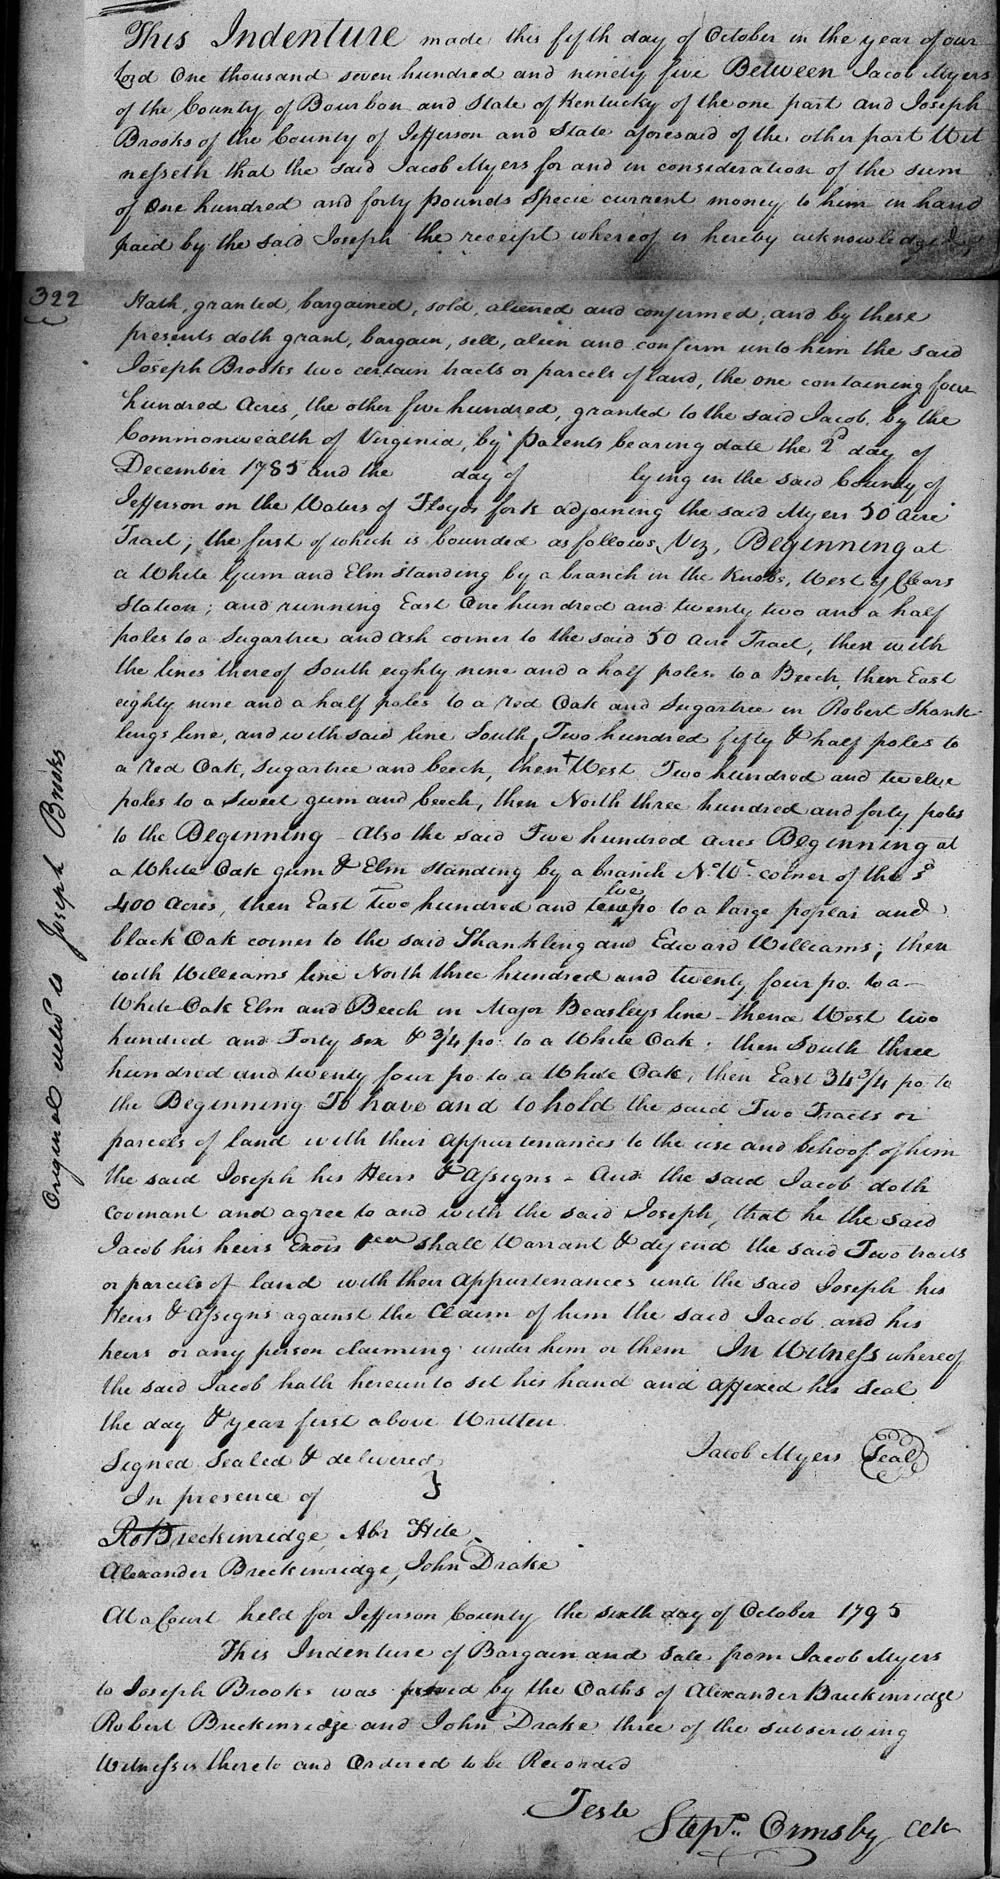 This Indenture made this fifth day of October in the year of our
Lord One thousand seven hundred and ninety five Between Jacob Myers
of the County of Bourbon and State of Kentucky of the one part and Joseph
Brooks of the County of Jefferson and State aforesaid of the other part Wit
nesseth that the said Jacob Myers for and in consideration of the sum
of One hundred and forty pounds specie current money to him in hand
paid by the said Joseph the receipt whereof is hereby acknowledged
322
Hath, granted, bargained, sold, aliened and confirmed, and by these
presents doth grant, bargain, sell, alien and confirm unto him the said
Joseph Brooks two certain tracts or parcels of land, the one containing four
hundred Acres, the other five hundred, granted to the said Jacob, by the
Commonwealth of Virginia, by Patents bearing date the 2d day of
December 1785 and the day of lying in the said County of
Jefferson on the Waters of Floyds fork adjoining the said Myers 50 Acre
Tract; the first of which is bounded as follows, Viz, Beginning at
a White Gum and Elm standing by a branch in the Knobs, West of Clears
Station; and running East One hundred and twenty two and a half
poles to a Sugartree and Ash corner to the said 50 Acre Tract, then with
the lines thereof South eighty nine and a half poles to a Beech, then East
eighty nine and a half poles to a red Oak and Sugartree in Robert Shank
lings line, and with said line South, Two hundred fifty & half poles to
a red Oak, Sugartree and beech, then West Two hundred and twelve
poles to a Sweet gum and beech, then North three hundred and forty poles
to the Beginning - Also the said Five hundred acres Beginning at
a White Oak gum & Elm standing by a branch No. Wt. corner of the sd
400 Acres, then East two hundred and twelve po to a large poplar and
black Oak corner to the said Shankling and Edward Williams; then
with Williams line North three hundred and twenty four po. to a
White Oak Elm and Beech in Major Beasleys line - thence West two
hundred and Forty six & 3/4 po. to a White Oak, then South three
hundred and twenty four po. to a White Oak, then East 34 3/4 po to
the Beginning To have and to hold the said Two Tracts or
parcels of land with their appurtenances to the use and behoof of him
the said Joseph his Heirs & Assigns - And the said Jacob doth
covenant and agree to and with the said Joseph, that he the said
Jacob his heirs Exors shall Warrant & defend the said Two tracts
or parcels of land with their appurtenances unto the said Joseph his
Heirs & Assigns against the Claim of him the said Jacob and his
heirs or any person claiming under him or them In Witness whereof
the said Jacob hath hereunto set his hand and affixed his Seal
the day & year first above Written
Signed Sealed & delivered Jacob Myers Seal
In presence of }
Ro Breckinridge, Abr Hite
Alexander Breckinridge, John Drake
At a Court held for Jefferson County the sixth day of October 1795
This Indenture of Bargain and Sale from Jacob Myers
to Joseph Brooks was proved by the Oaths of Alexander Breckinridge
Robert Breckinridge and John Drake three of the subscribing
Witnesses thereto and Ordered to be Recorded
Teste
Stepn. Ormsby Clk
Original deliv'd to Joseph Brooks